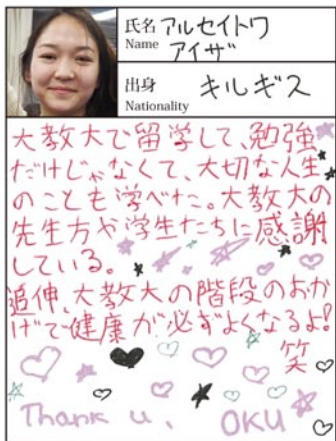 氏名 アルセイトワ
Name アイザ
出身 キルギス
Nationality
大教大で留学して、勉強
だけじゃなくて、大切な人生
のことも学べた。大教大の
先生方や学生たちに感謝
している。
追伸、大教大の階段のおか
げで健康が必ずよくなるよ!
笑
Thank u, OKU